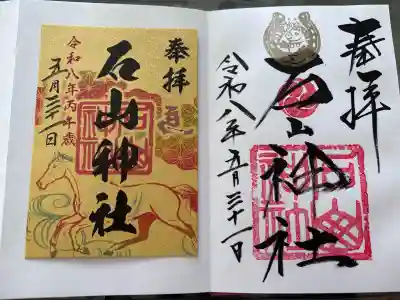 奉拝
石山神社
令和八年丙午歳
五月三十一日
奉拝
石山神社
令和八年五月三十一日